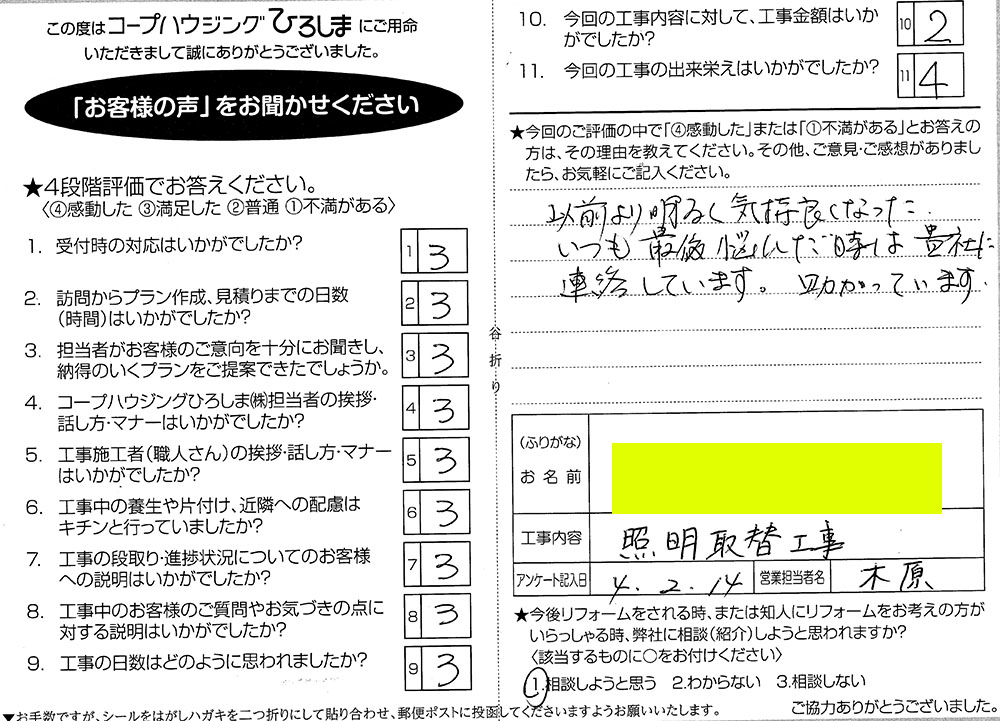 この度はコープハウジングひろしまにご用命
いただきまして誠にありがとうございました。
「お客様の声」をお聞かせください
★4段階評価でお答えください。
〈④感動した ③満足した ②普通 ①不満がある〉
1. 受付時の対応はいかがでしたか?
1 3
2. 訪問からプラン作成、見積りまでの日数
(時間)はいかがでしたか?
2 3
3. 担当者がお客様のご意向を十分にお聞きし、
納得のいくプランをご提案できたでしょうか。
3 3
4. コープハウジングひろしま㈱担当者の挨拶・
話し方・マナーはいかがでしたか?
4 3
5. 工事施工者(職人さん)の挨拶・話し方・マナー
はいかがでしたか?
5 3
6. 工事中の養生や片付け、近隣への配慮は
キチンと行っていましたか?
6 3
7. 工事の段取り・進捗状況についてのお客様
への説明はいかがでしたか?
7 3
8. 工事中のお客様のご質問やお気づきの点に
対する説明はいかがでしたか?
8 3
9. 工事の日数はどのように思われましたか?
9 3
▼お手数ですが、シールをはがしハガキを二つ折りにして貼り合わせ、郵便ポストに投函してくださいますようお願いいたします。
谷折り
10. 今回の工事内容に対して、工事金額はいか
がでしたか?
10 2
11. 今回の工事の出来栄えはいかがでしたか?
11 4
★今回のご評価の中で「④感動した」または「①不満がある」とお答えの
方は、その理由を教えてください。その他、ご意見・ご感想がありまし
たら、お気軽にご記入ください。
以前より明るく気持良くなった.
いつも最後悩んだ時は貴社に
連絡しています。助かっています.
(ふりがな)
お名前
工事内容 照明取替工事
アンケート記入日 4.2.14 営業担当者名 木原
★今後リフォームをされる時、または知人にリフォームをお考えの方が
いらっしゃる時、弊社に相談(紹介)しようと思われますか?
〈該当するものに○をお付けください〉
1.相談しようと思う 2.わからない 3.相談しない
ご協力ありがとうございました。